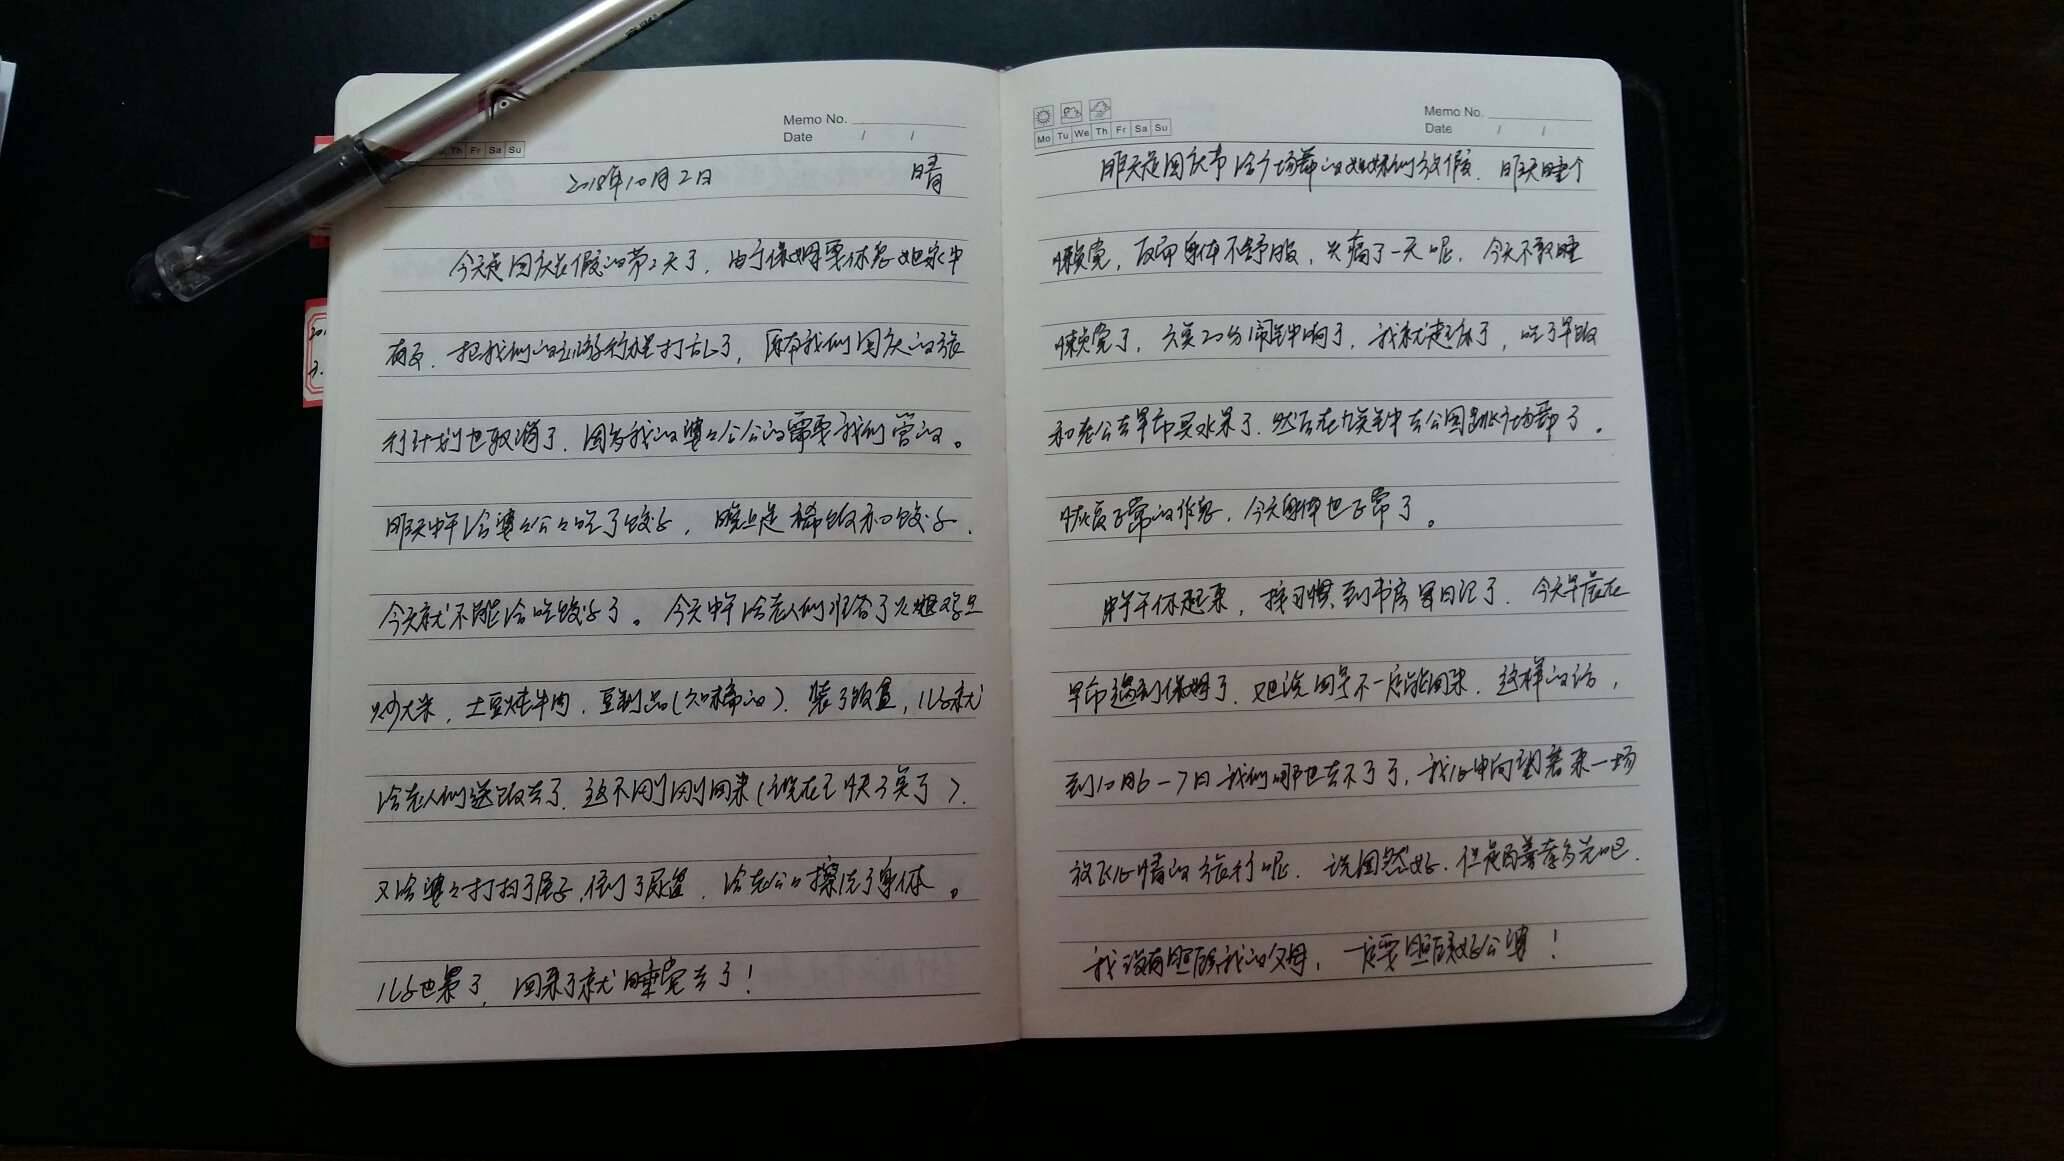 Memo No.
Date / /
Th Fr Sa Su
2018年10月2日 晴
今天是国庆长假的第2天了，由于保姆要休息她家中
有事，把我们的旅游行程打乱了，原本我们国庆的旅
行计划也取消了，因为我的婆々公公的需要我们管的。
昨天中午给婆々公々吃了饺子，晚上是稀饭和饺子，
今天就不能给吃饺子了。今天中午给老人们准备了火腿鸡旦
炒大米，土豆炖牛肉，豆制品（勾稀的），装了饭盒，儿子就
给老人们送饭去了，这不刚刚回来（现在已快了点了），
又给婆々打扫了屋子，倒了尿盆，给老公公擦洗了身体。
儿子也累了，回来了就睡觉去了！
Memo No.
Date / /
Mo Tu We Th Fr Sa Su
昨天是国庆节给广场舞的姐妹们放假，昨天睡个
懒觉，反而身体不舒服，头痛了一天呢，今天不敢睡
懒觉了，六点20分闹钟响了，我就起床了，吃了早饭
和老公去早市买水果了，然后在九点钟去公园跳广场舞了。
恢复正常的作息，今天身体也正常了。
中午午休起来，按习惯到书房写日记了，今天早晨在
早市遇到保姆了，她说四号不一定能回来，这样的话，
到10月6-7日我们哪也去不了了，我心中向望着来一场
放飞心情的旅行呢，说固然好，但是百善孝为先吧，
我没有照顾我的父母，一定要照顾好公婆！